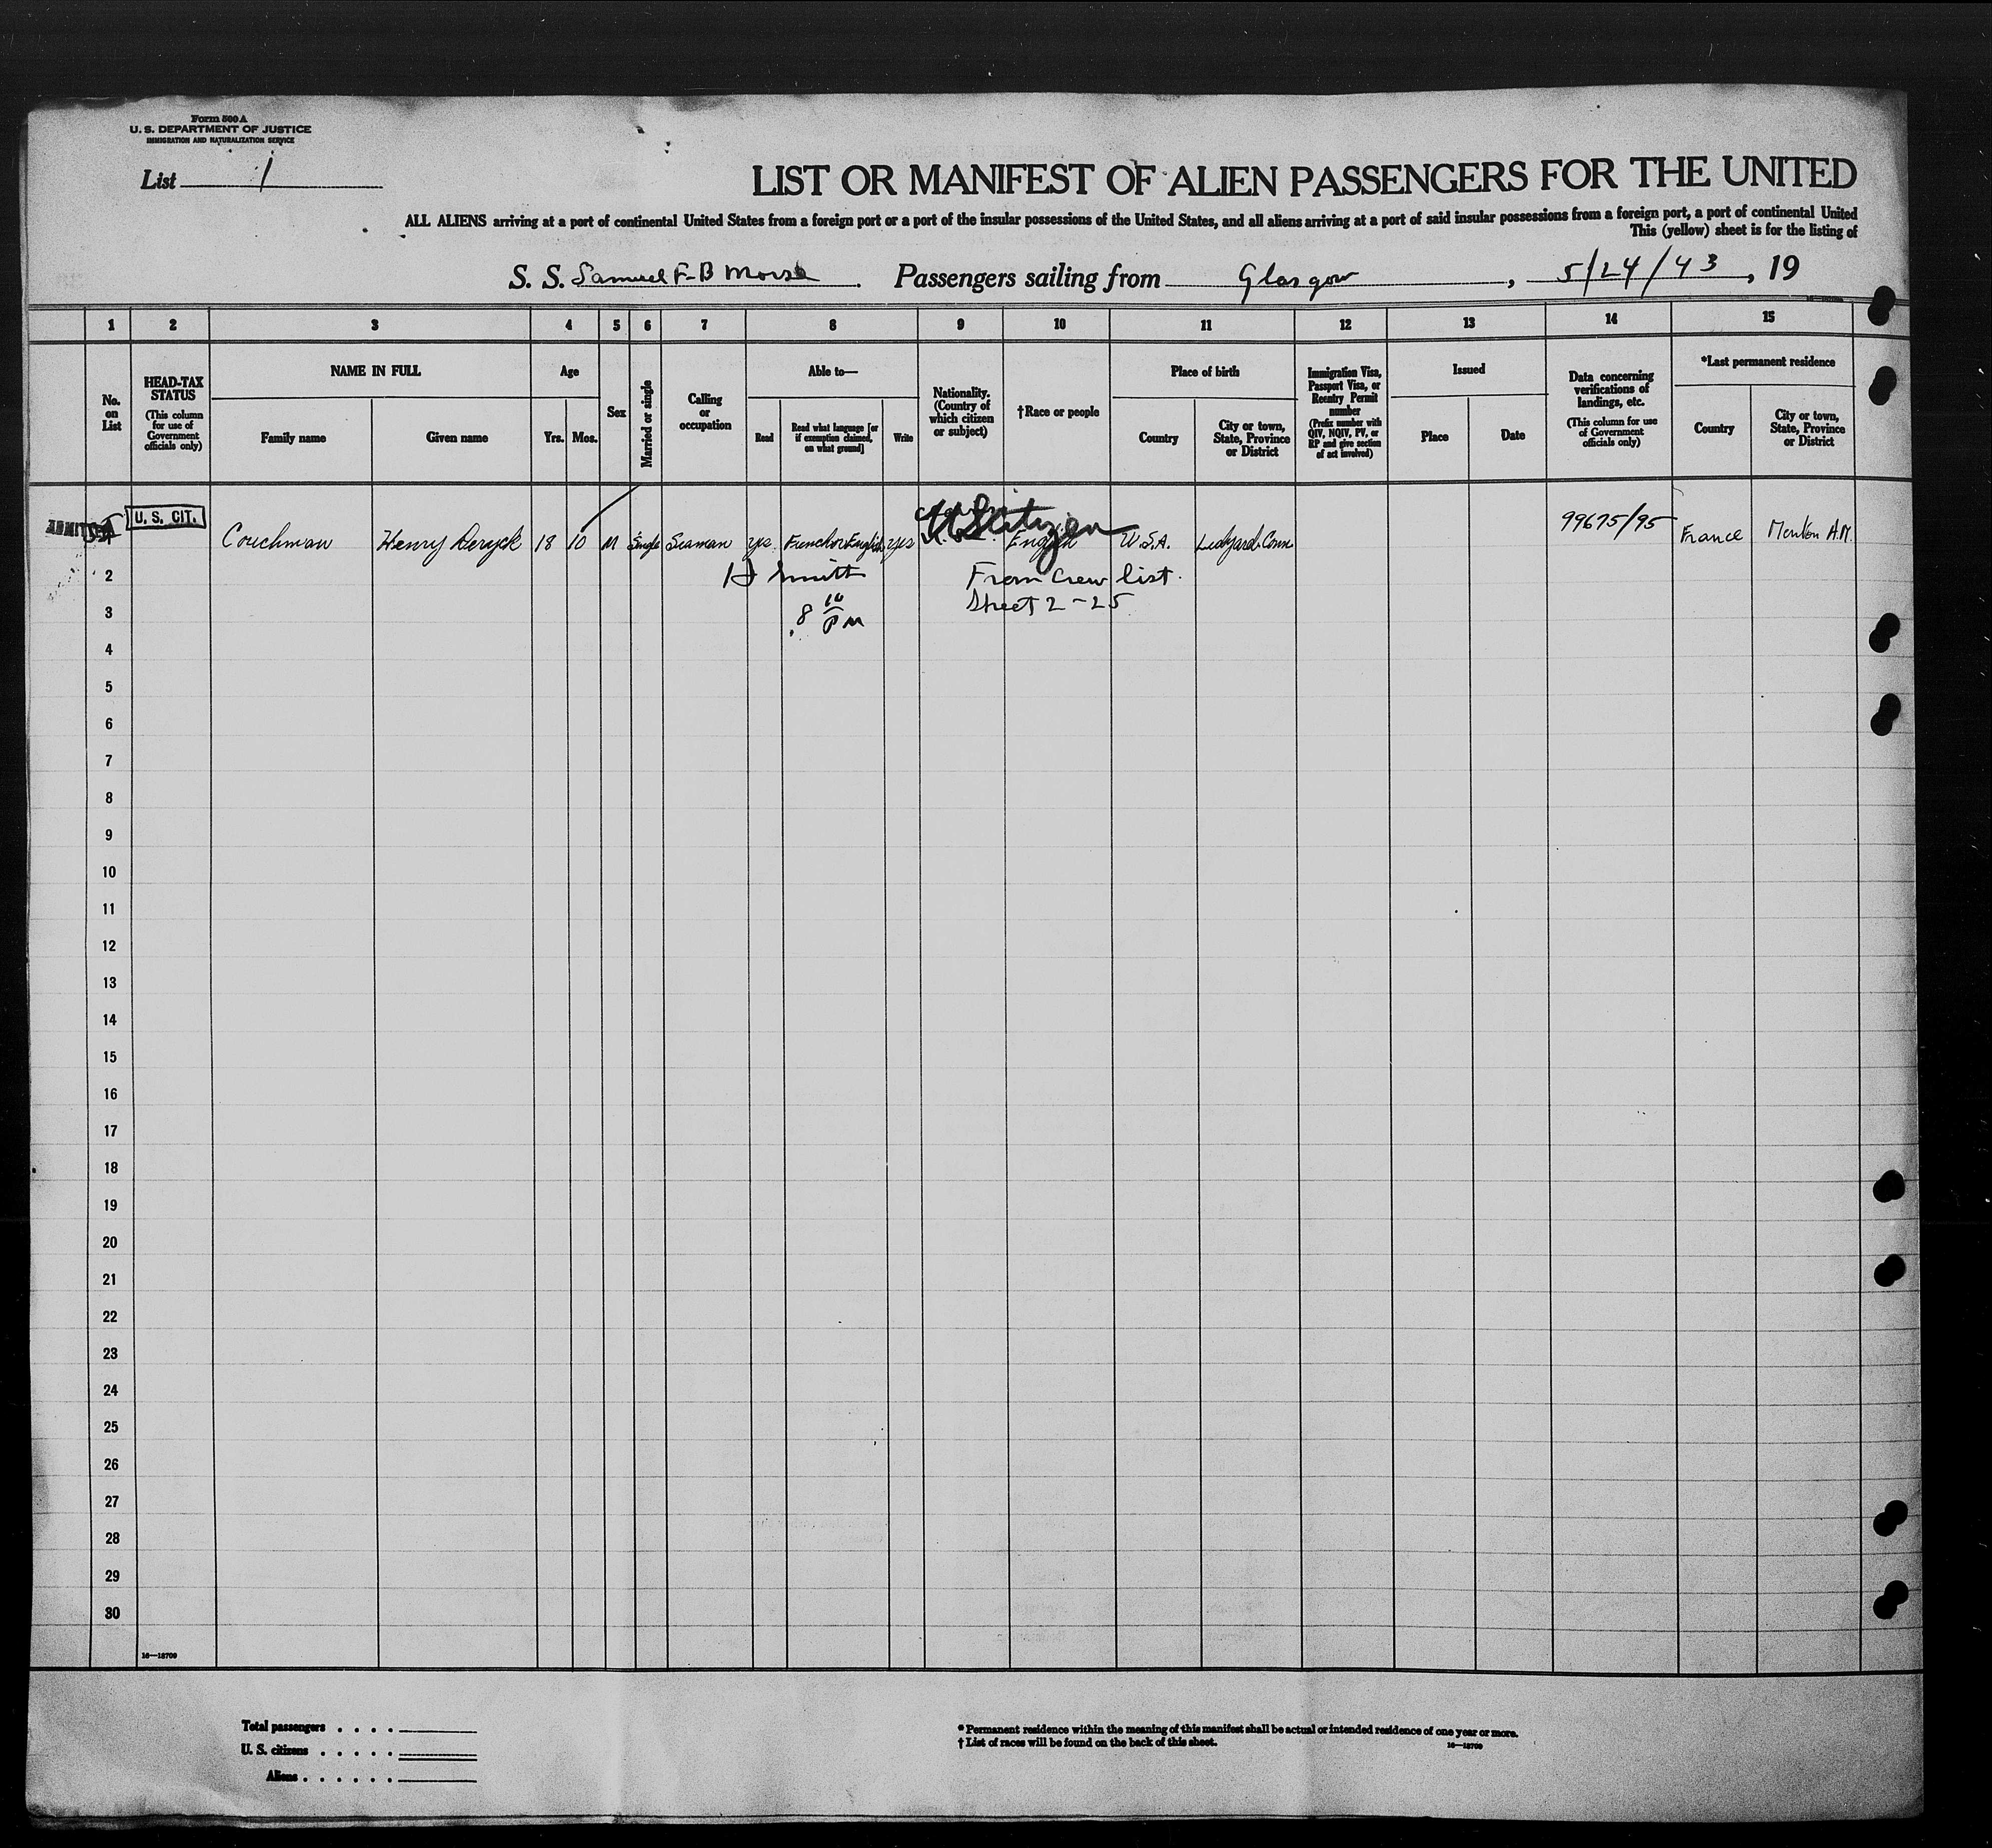 Form 500 A
U. S. DEPARTMENT OF JUSTICE
IMMIGRATION AND NATURALIZATION SERVICE
List 1
LIST OR MANIFEST OF ALIEN PASSENGERS FOR THE UNITED
ALL ALIENS arriving at a port of continental United States from a foreign port or a port of the insular possessions of the United States, and all aliens arriving at a port of said insular possessions from a foreign port, a port of continental United
This (yellow) sheet is for the listing of
S. S. Samuel F-B Morse . Passengers sailing from Glasgow , 5/24/43 , 19
1 2 3 4 5 6 7 8 9 10 11 12 13 14 15
No. on List
HEAD-TAX STATUS
(This column for use of Government officials only)
NAME IN FULL
Family name
Given name
Age
Yrs.
Mos.
Sex
Married or single
Calling or occupation
Able to—
Read
Read what language [or if exemption claimed, on what ground]
Write
Nationality. (Country of which citizen or subject)
†Race or people
Place of birth
Country
City or town, State, Province or District
Immigration Visa, Passport Visa, or Reentry Permit number
(Prefix number with QIV, NQIV, PV, or RP and give section of act involved)
Issued
Place
Date
Data concerning verifications of landings, etc.
(This column for use of Government officials only)
*Last permanent residence
Country
City or town, State, Province or District
ADMITTED
U. S. CIT.
Couchman Henry Deryck 18 10 M Single Seaman yes French or English yes US Citizen English U.S.A. Ledyard. Conn 99675/95 France Menton A.M.
2 H Smith From Crew list.
3 8 10 PM Sheet 2-25
4
5
6
7
8
9
10
11
12
13
14
15
16
17
18
19
20
21
22
23
24
25
26
27
28
29
30
16—18709
Total passengers . . . .
U. S. citizens . . . . .
Aliens . . . . . .
* Permanent residence within the meaning of this manifest shall be actual or intended residence of one year or more.
† List of races will be found on the back of this sheet.
16—18709